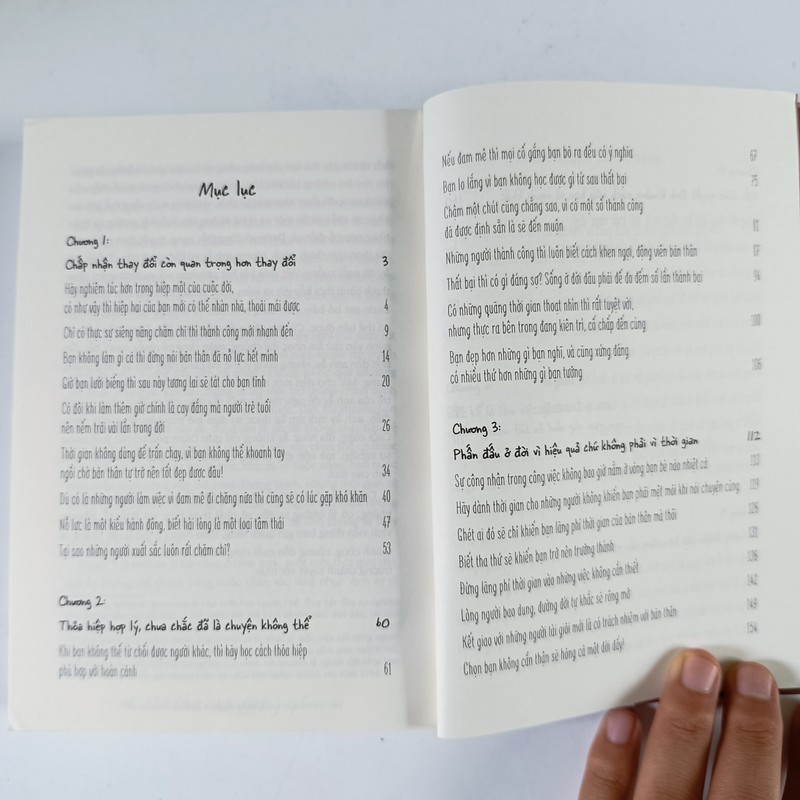 Mục lục
Chương 1:
Chấp nhận thay đổi còn quan trọng hơn thay đổi 3
Hãy nghiêm túc hơn trong hiệp một của cuộc đời,
có như vậy thì hiệp hai của bạn mới có thể nhàn nhã, thoải mái được 4
Chỉ có thực sự siêng năng chăm chỉ thì thành công mới nhanh đến 9
Bạn không làm gì cả thì đừng nói bản thân đã nỗ lực hết mình 14
Giờ bạn lười biếng thì sau này tương lai sẽ tát cho bạn tỉnh 20
Có đôi khi làm thêm giờ chính là cay đắng mà người trẻ tuổi
nên nếm trải vài lần trong đời 26
Thời gian không dùng để trốn chạy, vì bạn không thể khoanh tay
ngồi chờ bản thân tự trở nên tốt đẹp được đâu! 34
Dù có là những người làm việc vì đam mê đi chăng nữa thì cũng sẽ có lúc gặp khó khăn 40
Nỗ lực là một kiểu hành động, biết hài lòng là một loại tâm thái 47
Tại sao những người xuất sắc luôn rất chăm chỉ? 53
Chương 2:
Thỏa hiệp hợp lý, chưa chắc đã là chuyện không thể 60
Khi bạn không thể từ chối được người khác, thì hãy học cách thỏa hiệp
phù hợp với hoàn cảnh 61
Nếu đam mê thì mọi cố gắng bạn bỏ ra đều có ý nghĩa 67
Bạn lo lắng vì bạn không học được gì từ sau thất bại 75
Chậm một chút cũng chẳng sao, vì có một số thành công
đã được định sẵn là sẽ đến muộn 81
Những người thành công thì luôn biết cách khen ngợi, động viên bản thân 87
Thất bại thì có gì đáng sợ? Sống ở đời đâu phải để đo đếm số lần thành bại 94
Có những quãng thời gian thoạt nhìn thì rất tuyệt vời,
nhưng thực ra bên trong đang kiên trì, cố chấp đến cùng 100
Bạn đẹp hơn những gì bạn nghĩ, và cũng xứng đáng
có nhiều thứ hơn những gì bạn tưởng 106
Chương 3:
Phấn đấu ở đời vì hiệu quả chứ không phải vì thời gian 112
Sự công nhận trong công việc không bao giờ nằm ở vòng bạn bè nào nhiệt cả. 113
Hãy dành thời gian cho những người không khiến bạn phải mệt mỏi khi nói chuyện cùng 119
Ghét ai đó sẽ chỉ khiến bạn lãng phí thời gian của bản thân mà thôi 126
Biết tha thứ sẽ khiến bạn trở nên trưởng thành 131
Đừng lãng phí thời gian vào những việc không cần thiết 136
Lòng người bao dung, đường đời tự khắc sẽ rộng mở 142
Kết giao với những người tài giỏi mới là có trách nhiệm với bản thân 149
Chọn bạn không cẩn thận sẽ hỏng cả một đời đấy! 154